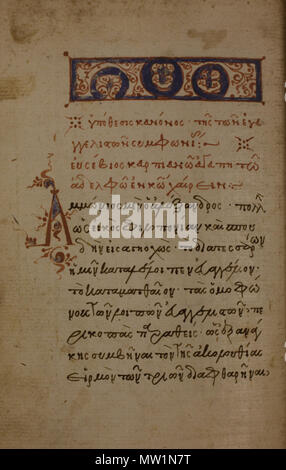 ὑπόθεσις κανόνος · τῆς τῶν εὐα
γγελιστῶν συμφωνί(ας):
εὐσέβιος καρπιανῷ ἀγαπητῷ
ἀδελφῷ ἐν κω χαίρειν:
Ἀμμώνιος μὲν ὁ ἀλεξανδρος · πολλ(ὴν)
ὡς εἰκὸς φιλοπονίαν καὶ σπου
δὴν εἰσαγηοχως · τὸ διὰ τεσσάρων
ἡμῖν καταλέλοιπεν εὐαγγέλιον ·
τὸ κατὰ ματθαῖον · τὰς ὁμοφώ
νους τῶν λοιπῶν εὐαγγελιστῶν · πε
ρικοπὰς παραθείς · ὡς ἐξ ἀνάγ
κης συμβῆναι τὸν τῆς ἀκολουθίας
εἱρμὸν τῶν τριῶν διαφθαρῆναι
alamy
Image ID: MW1N7T
www.alamy.com